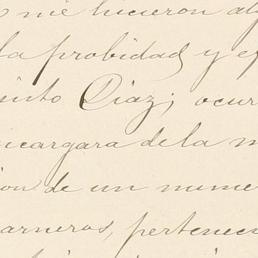 me hicieron al
la probidad y e
Diaz; ocur
ncargara de la m
ion de un nume
arneros, pertenec